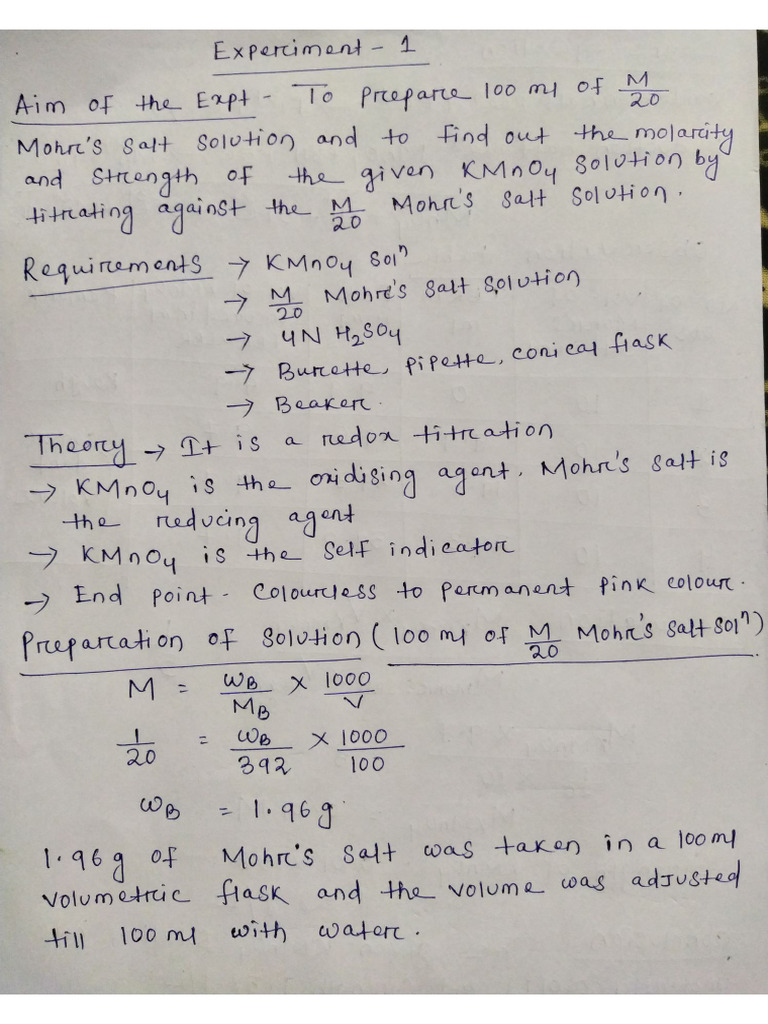 Experiment - 1
Aim of the Expt - To prepare 100 ml of M/20
Mohr's salt solution and to find out the molarity
and strength of the given KMnO4 solution by
titrating against the M/20 Mohr's salt solution.
Requirements → KMnO4 Solⁿ
→ M/20 Mohr's salt solution
→ 4N H2SO4
→ Burette, pipette, conical flask
→ Beaker.
Theory → It is a redox titration
→ KMnO4 is the oxidising agent. Mohr's salt is
the reducing agent
→ KMnO4 is the self indicator
→ End point - Colourless to permanent pink colour.
Preparation of solution (100 ml of M/20 Mohr's salt solⁿ)
M = WB/MB × 1000/V
1/20 = WB/392 × 1000/100
WB = 1.96 g.
1.96 g of Mohr's salt was taken in a 100 ml
volumetric flask and the volume was adjusted
till 100 ml with water.